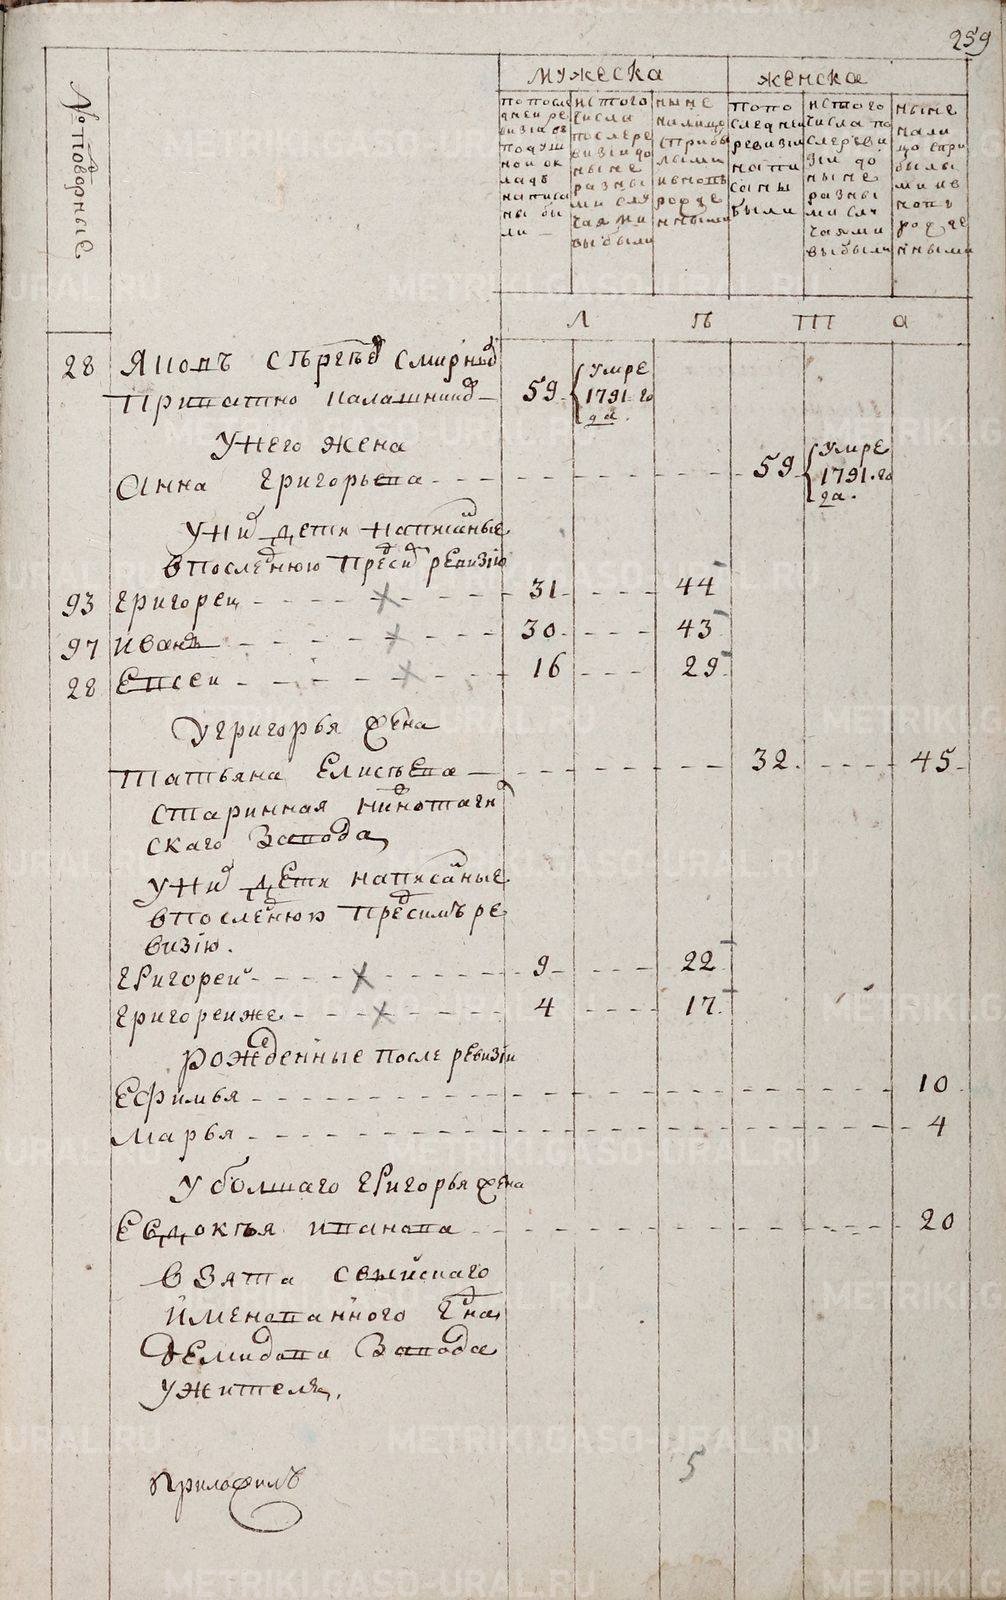 259
№ подворные
мужеска
женска
по после
дней ре
визiи въ
подуш
ной ок
ладъ
написа
ны бы
ли
ис того
числа
послере
визiи до
ныне
разны
ми слу
чаями
выбыли
ныне
налицо
с прибы
лыми
и внофь
рожде
нными
по по
следней
ревизiи
напи
саны
были
ис того
числа по
сле реви
зiи до
ныне
разны
ми слу
чаями
выбыли
ныне
нали
цо спри
былы
ми и в
ноф
рожде
нными
Л Ѣ Т а
28 Яковъ Сѣргѣев Смирнов
59 Умре 1791 го да
Унего жена
Анна Григорьева 59 Умре 1791 го да.
Уних дети написаные
в последнюю пред сим ревизiю
93 Григорей 31 44
97 Иванъ 30 43
28 Евсей 16 29
Угригорья жена
Татьяна Елисѣева 32. 45
старинная нижнотаги
скаго завода
Уних дети написаные
в последнюю пред симъ ре
визiю.
Григорей 9 22
Григорей же 4 17
рожденные после ревизiи
Ефимья 10
Марья 4
У болшаго Григорья жена
Евдокѣя Иванова 20
Взята
имянованного Г на
Демидова Завода
ужителя.
5